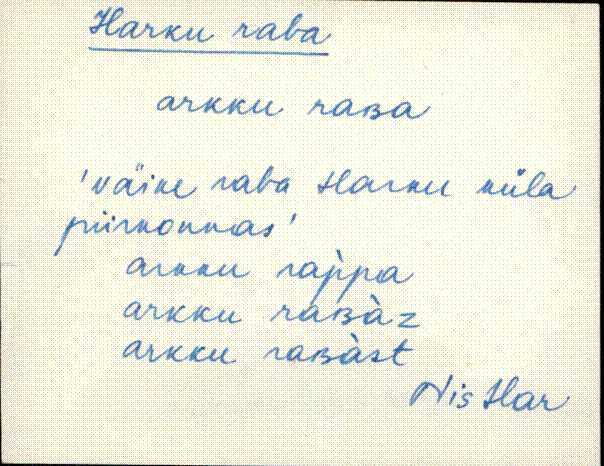 Harku raba
arkku raʙa
'väike raba Harku küla
piirkonnas'
arkku rap̀pa
arkku raʙàz
arkku raʙàst
Nis Har